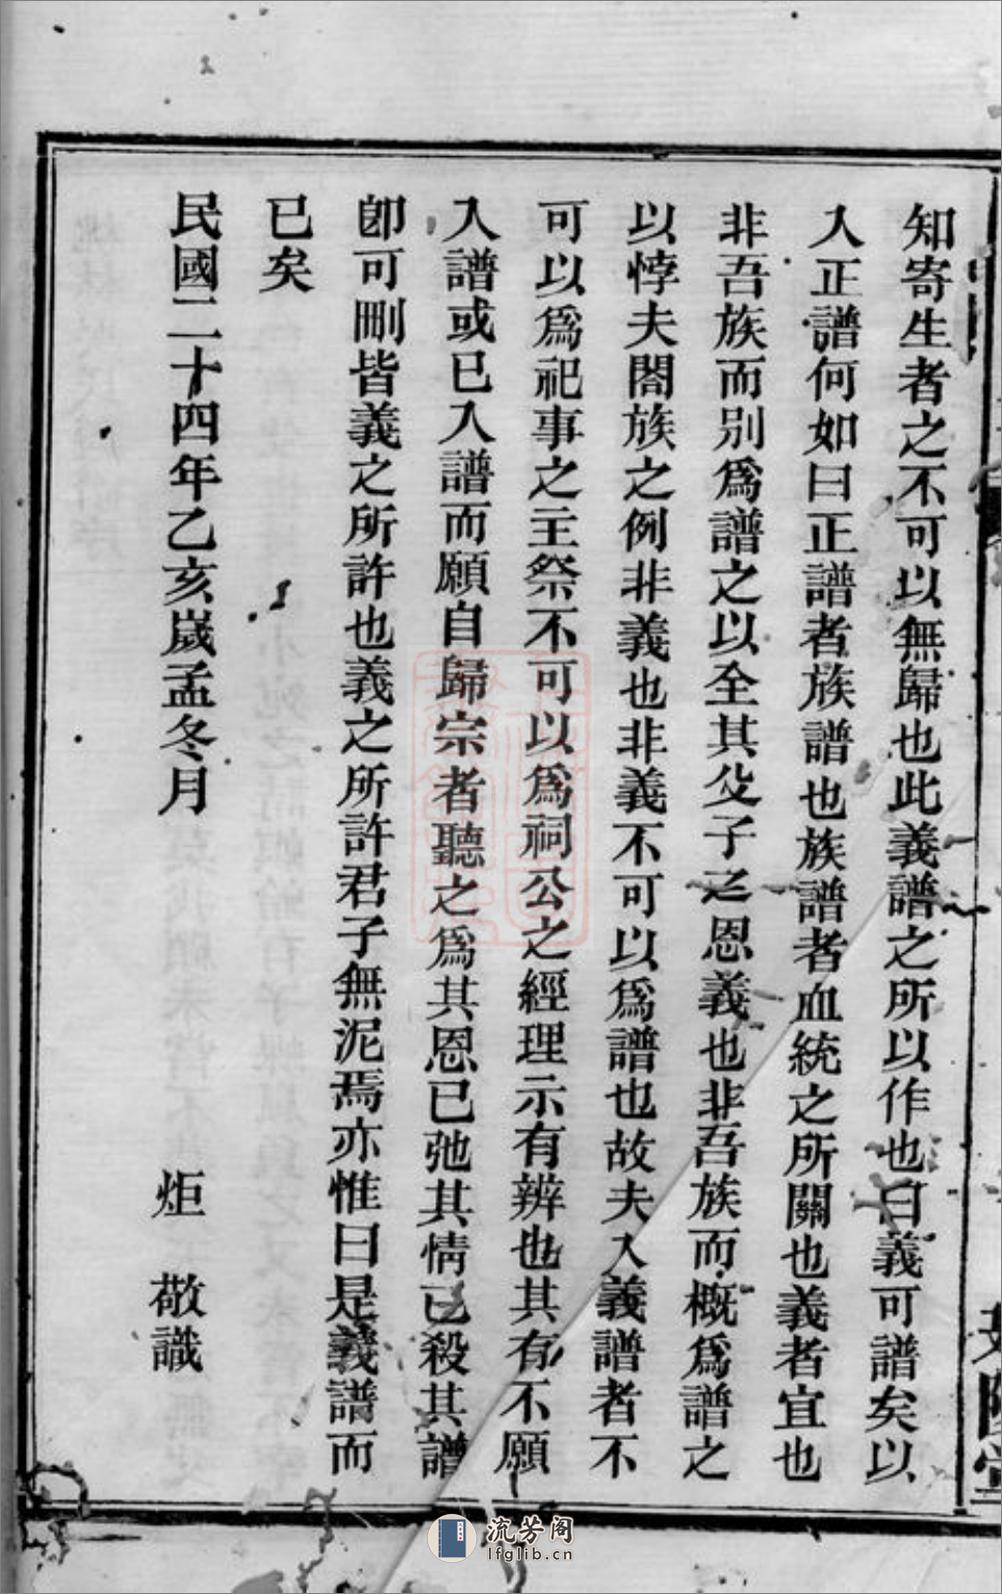 知寄生者之不可以無歸也此義譜之所以作也曰義可譜矣以
入正譜何如曰正譜者族譜也族譜者血統之所關也義者宜也
非吾族而別爲譜之以全其父子之恩義也非吾族而概爲譜之
以悖夫閤族之例非義也非義不可以爲譜也故夫入義譜者不
可以爲祀事之主祭不可以爲祠公之經理示有辨也其有不願
入譜或已入譜而願自歸宗者聽之爲其恩已弛其情已殺其譜
卽可刪皆義之所許也義之所許君子無泥焉亦惟曰是義譜而
已矣
民國二十四年乙亥歲孟冬月
炬 敬識
流芳阁
lfglib.cn